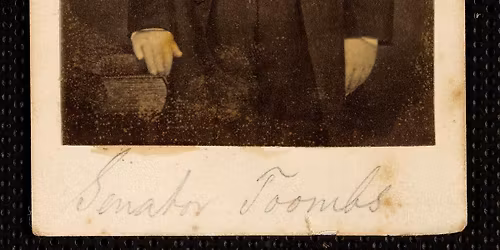 Senator Toombs